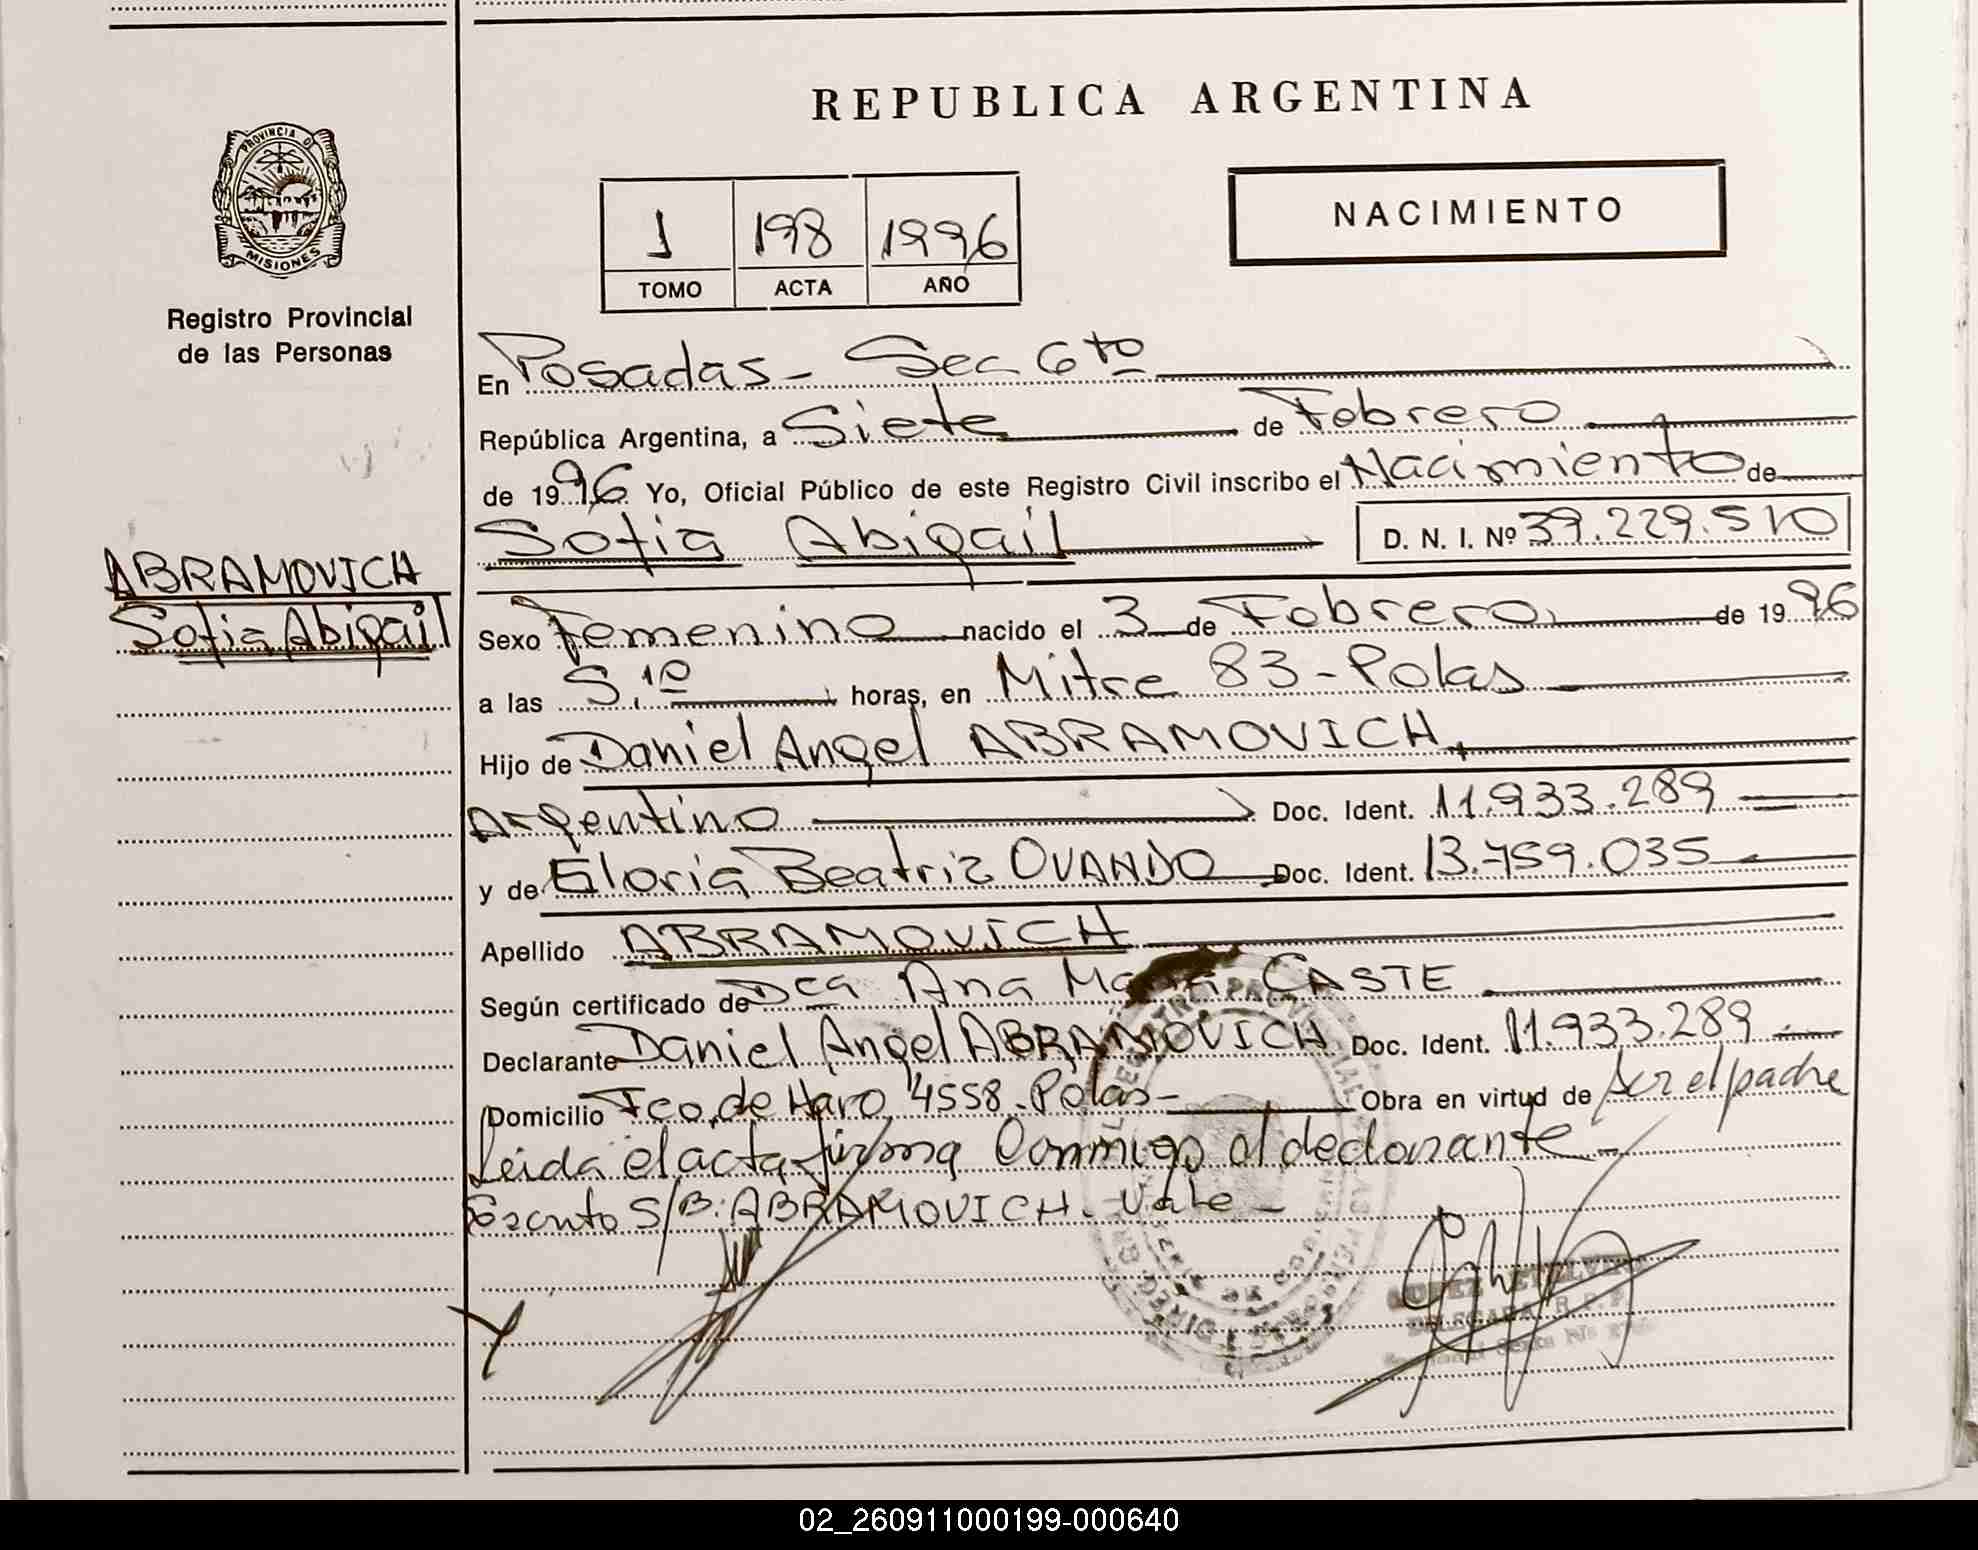 REPUBLICA ARGENTINA
PROVINCIA D
MISIONES
Registro Provincial
de las Personas
1 198 1996
TOMO ACTA AÑO
NACIMIENTO
En Posadas - Sec 6to
República Argentina, a Siete de Febrero
de 1996 Yo, Oficial Público de este Registro Civil inscribo el Nacimiento de
Sofia Abigail D. N. I. Nº 39.229.510
ABRAMOVICH
Sofia Abigail
Sexo Femenino nacido el 3 de Febrero de 1996
a las 5,10 horas, en Mitre 83 - Pdas
Hijo de Daniel Angel ABRAMOVICH
Argentino Doc. Ident. 11.933.289
y de Gloria Beatriz OVANDO Doc. Ident. 13.759.035
Apellido ABRAMOVICH
Según certificado de Dra Ana Maria CASTE
Declarante Daniel Angel ABRAMOVICH Doc. Ident. 11.933.289
Domicilio Fco. de Haro 4558 - Pdas - Obra en virtud de ser el padre
Leida el acta firma conmigo el declarante -
Escrito S/B: ABRAMOVICH. Vale -
DELEGADA R.P.P.
02_260911000199-000640